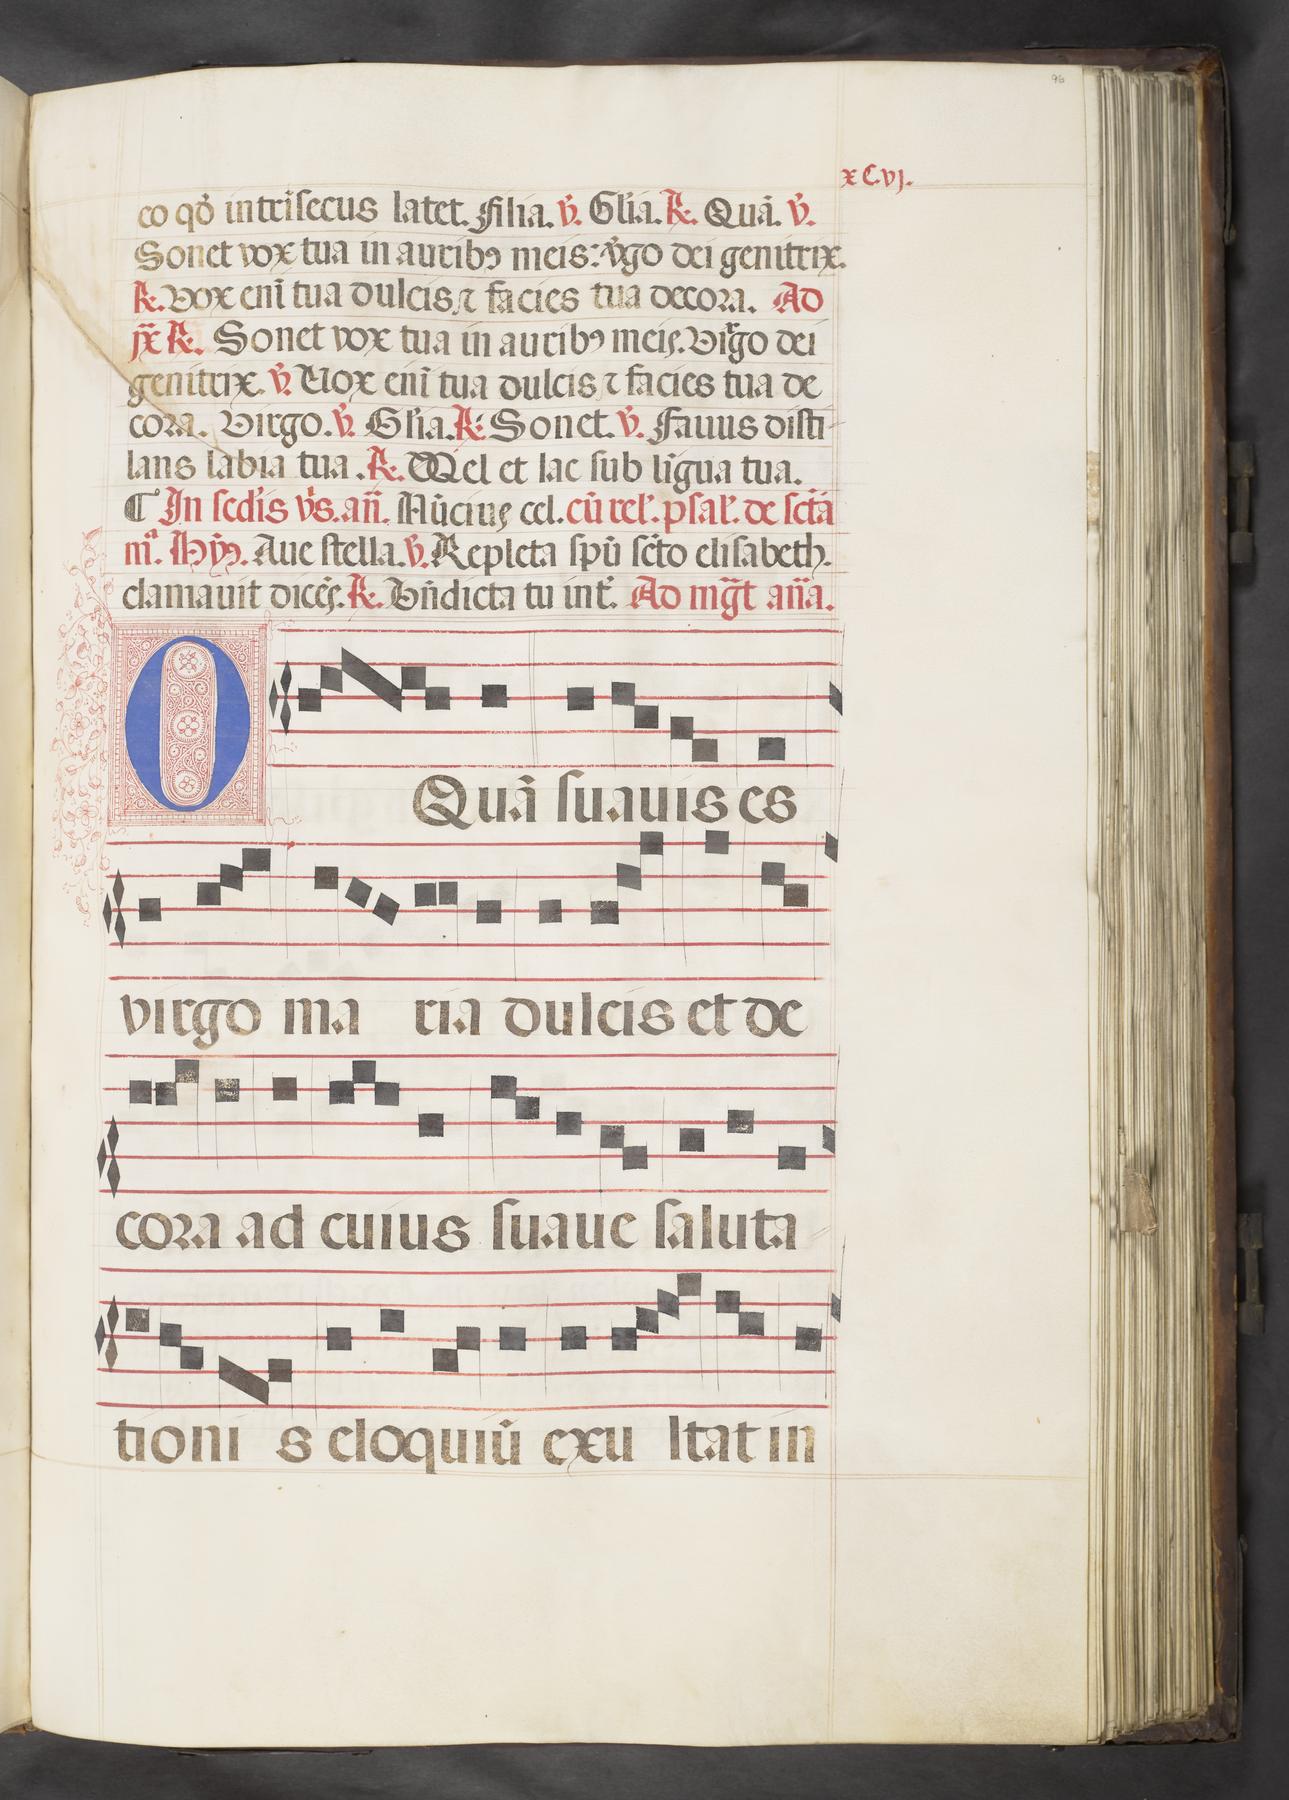 96
xCvj.
co qḋ intrīsecus latet. Filia. v̄. Glīa. R. Quā. v̄.
Sonet vox tua in auribꝫ meis: v̄go dei genitrix.
R. Vox eni᷃ tua dulcis ⁊ facies tua decora. Ad
jx̄ R. Sonet vox tua in auribꝫ meis. Virgo dei
genitrix. v̄. Vox enī tua dulcis ⁊ facies tua de
cora. Virgo. v̄. Glīa. R. Sonet. v̄. Fauus disti
lans labia tua. R. Mel et lac sub līgua tua.
¶ In scd̄is v̄s. an̄. Nūcius cel. cū rel'. psal'. de scā
mᵃ. Hym̄. Aue stella. v̄. Repleta spū sc̄to elisabeth.
clamauit dicēs. R. Bn̄dicta tu int̄. Ad mg̅t an̄a.
O Quā suauis es
virgo ma ria dulcis et de
cora ad cuius suaue saluta
tioni s eloquiū exu ltat in